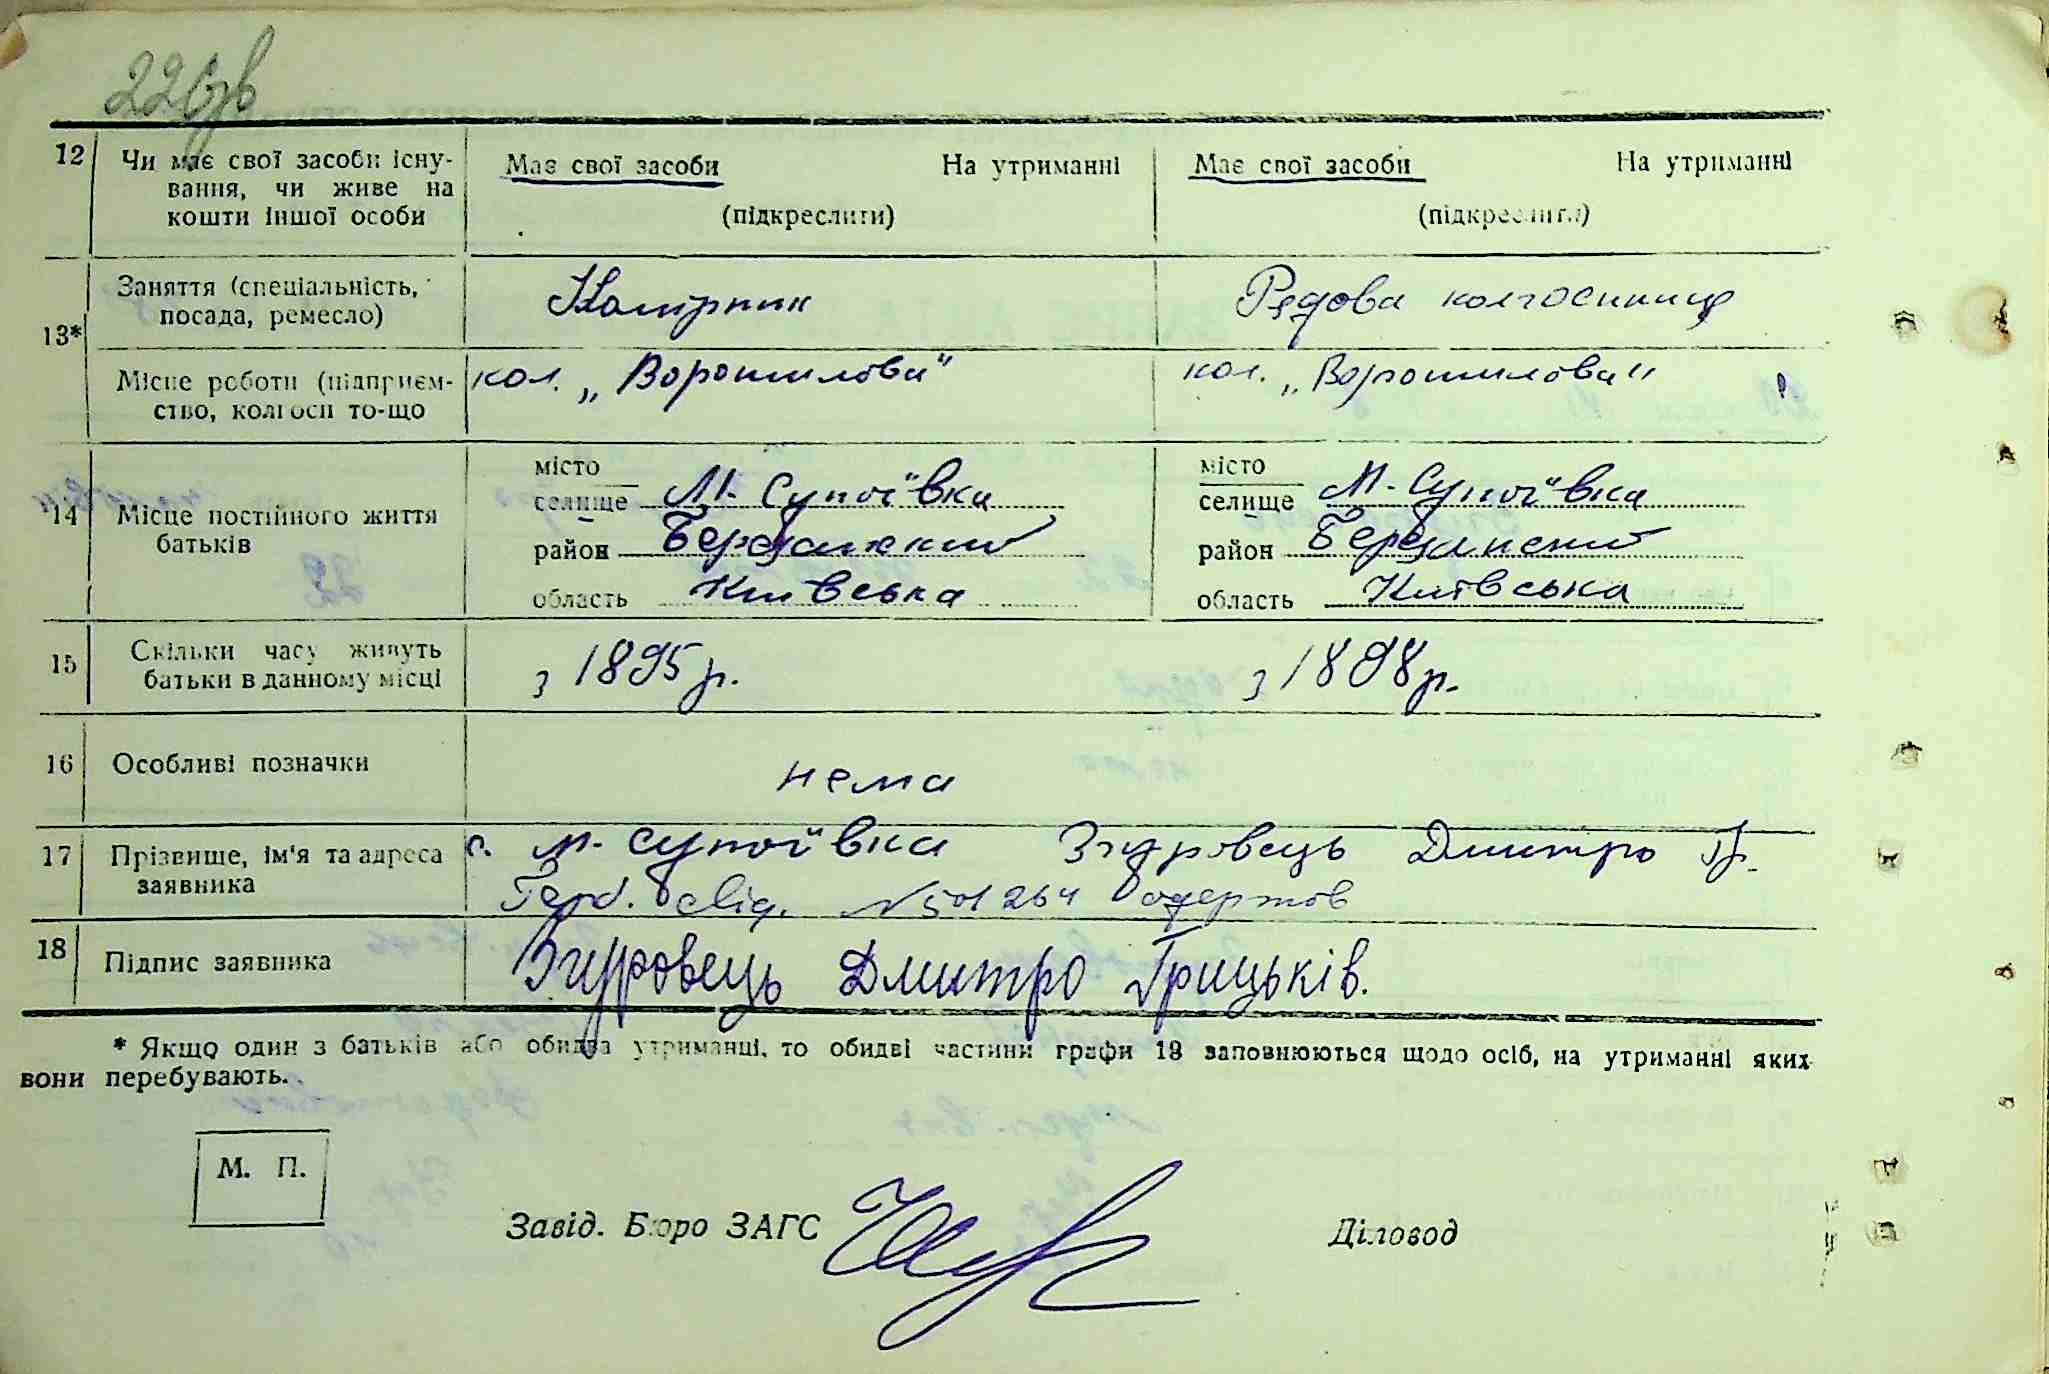 22 зв
12 Чи має свої засоби існу-
вання, чи живе на
кошти іншої особи
Має свої засоби На утриманні
(підкреслити)
Має свої засоби На утриманні
(підкреслити)
13*
Заняття (спеціальність,
посада, ремесло)
Комірник
Редова колгоспниця
Місце роботи (підприєм-
ство, колгосп то-що
кол. „Ворошилова"
кол. „Ворошилова"
14 Місце постійного життя
батьків
місто
селище М-Супоївка
район Березанський
область Київська
місто
селище М-Супоївка
район Березанський
область Київська
15 Скільки часу живуть
батьки в данному місці
з 1895 р.
з 1898 р.
16 Особливі позначки
нема
17 Прізвище, ім'я та адреса
заявника
с. М-Супоївка Згуровець Дмитро Гр.
№ 501264
18 Підпис заявника
Згуровець Дмитро Грицьків.
* Якщо один з батьків або обидва утриманці, то обидві частини графи 13 заповнюються щодо осіб, на утриманні яких
вони перебувають.
М. П.
Завід. Бюро ЗАГС
Діловод